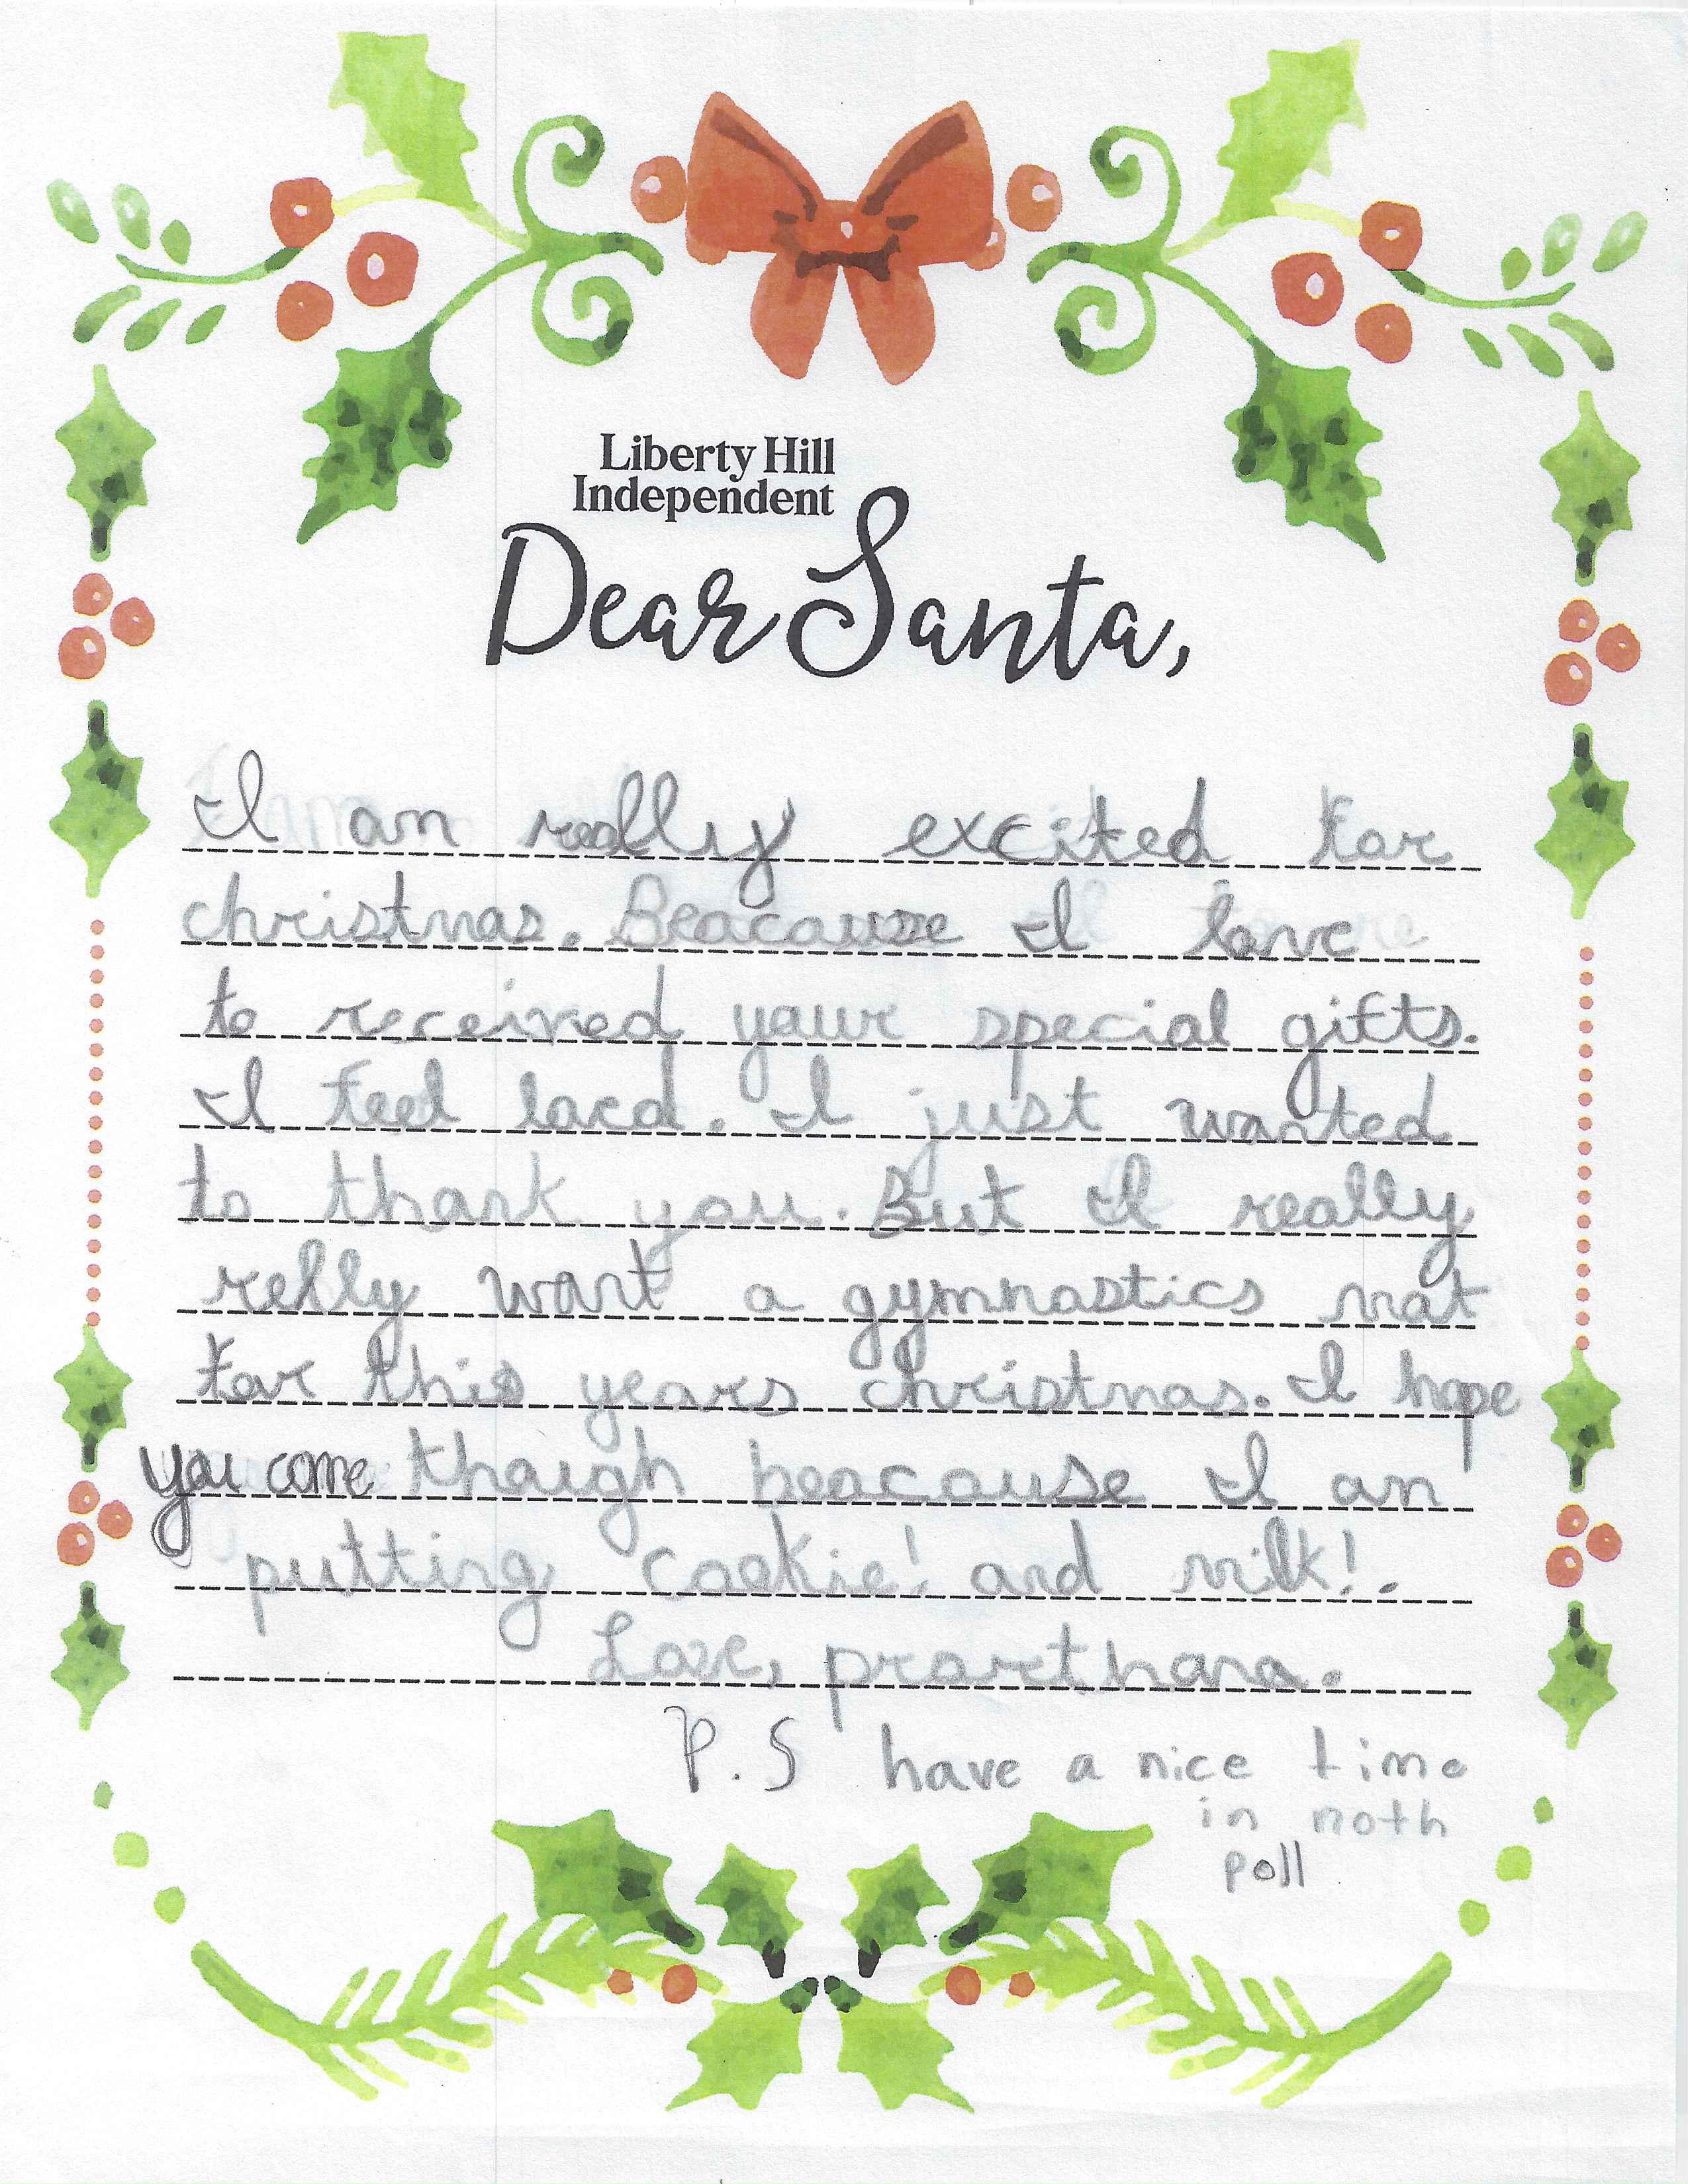 Liberty Hill
Independent
Dear Santa,
I am really excited for
christmas. Beacause I love
to received your special gifts.
I feel lovd. I just wanted
to thank you. But I really
relly want a gymnastics mat
for this years christmas. I hope
you come though beacause I am
putting cookie! and milk!.
Love, prarthana.
P.S have a nice time
in noth
poll